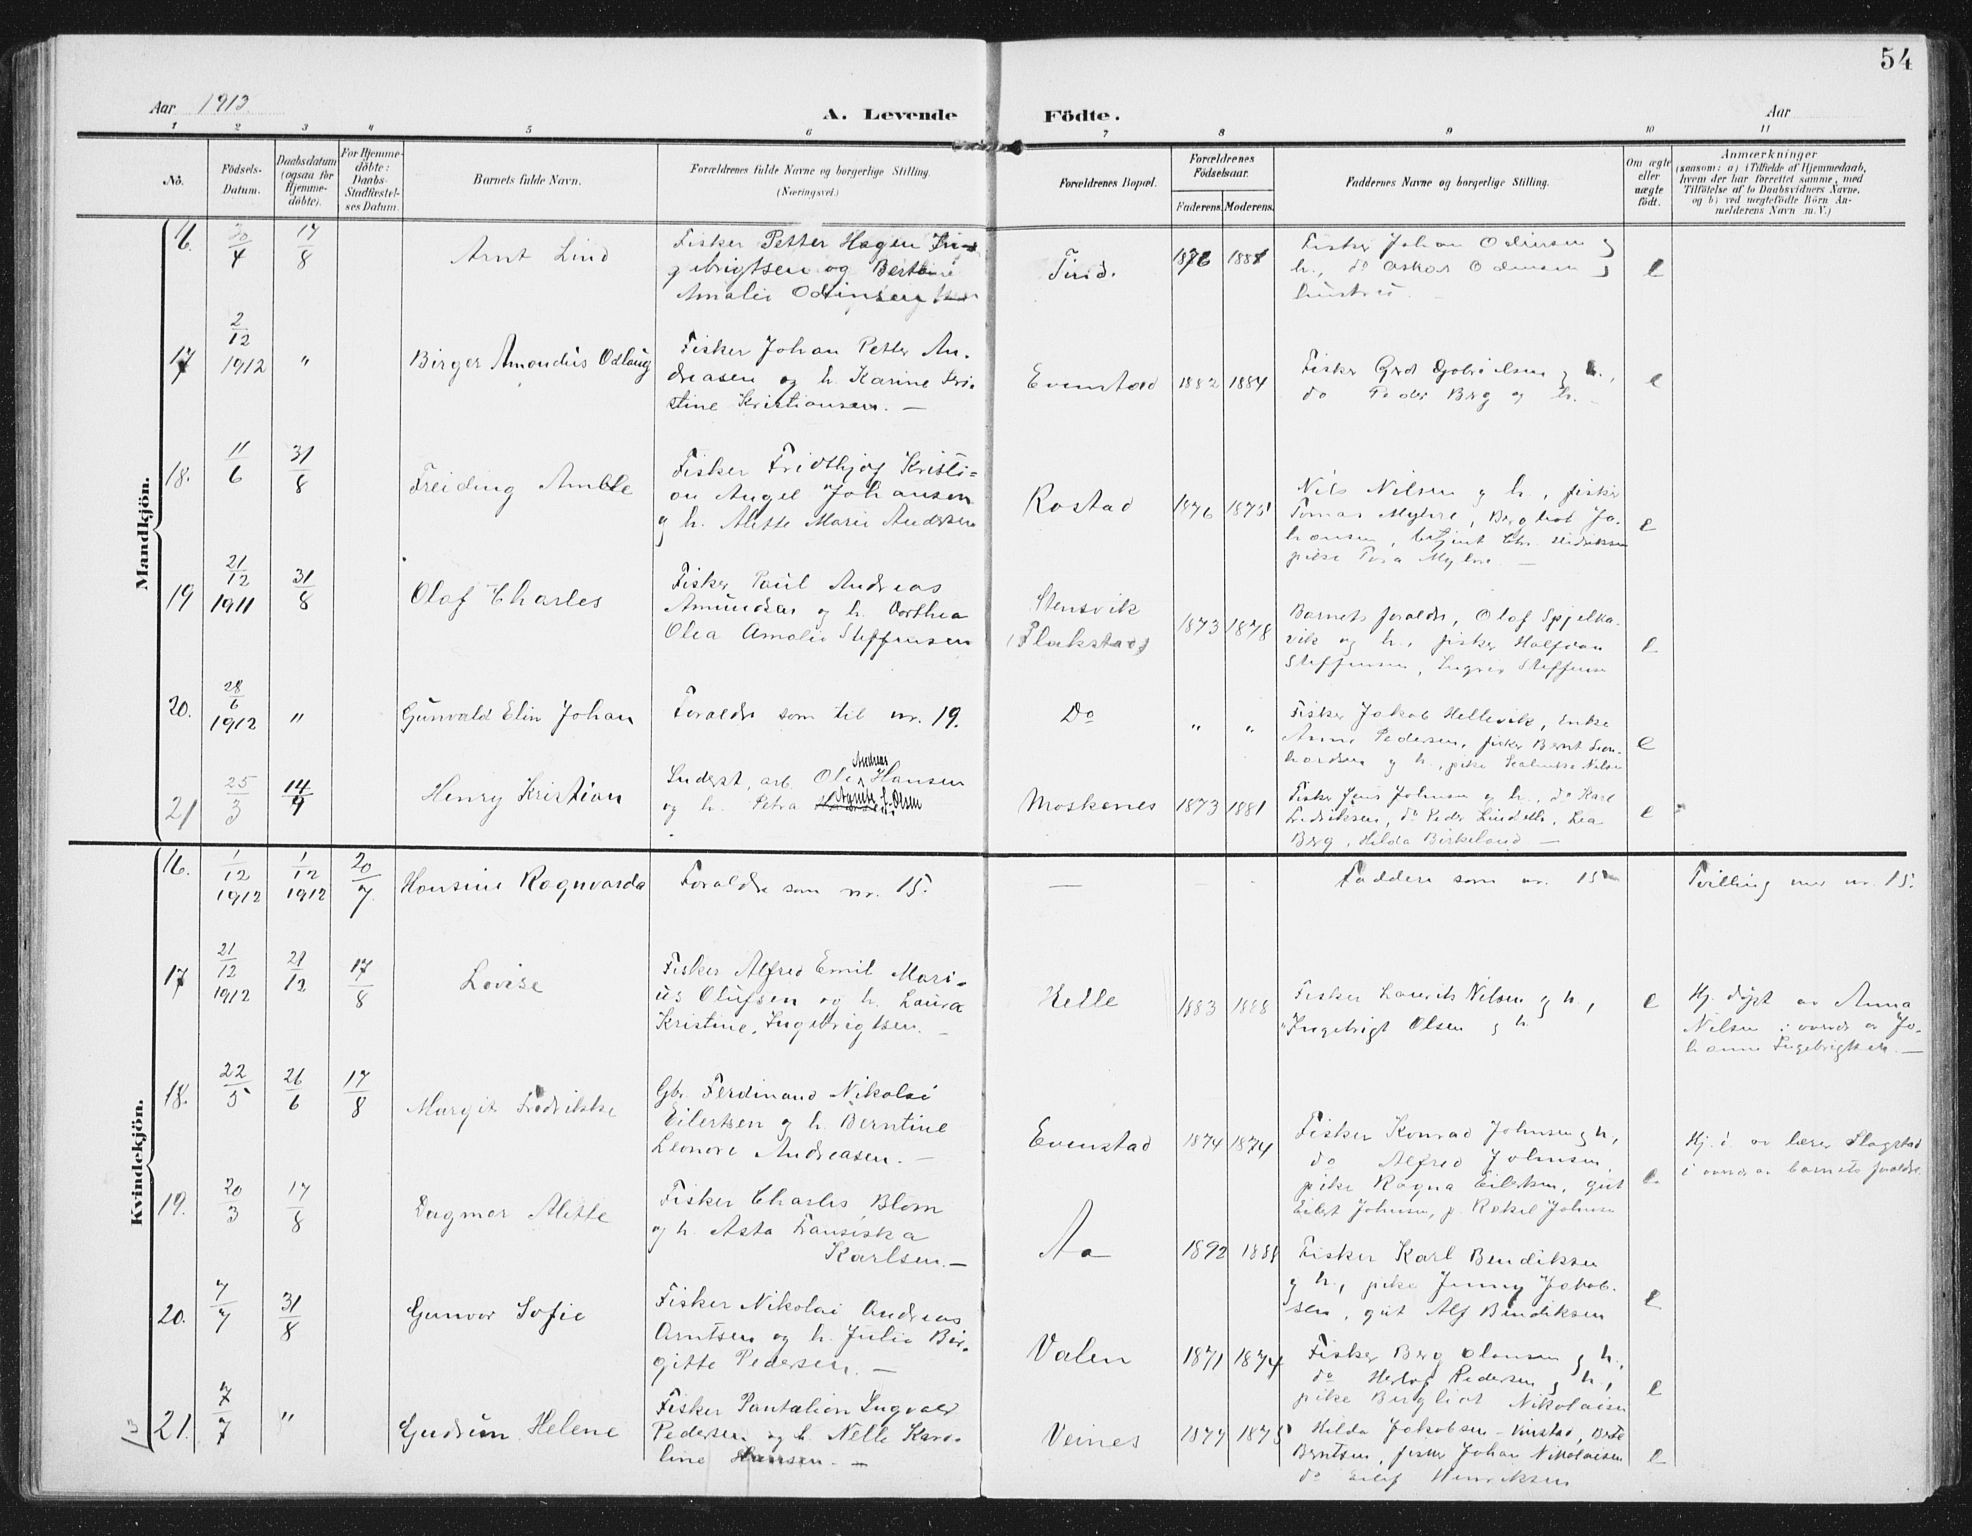 54
Aar 1913
A. Levende
Födte.
Aar
1 2 3 4 5 6 7 8 9 10 11
No.
Födsels-
Datum.
Daabsdatum
(ogsaa for
Hjemme-
döbte).
For Hjemme-
döbte:
Daabs-
Stadfæstel-
ses Datum.
Barnets fulde Navn.
Forældrenes fulde Navne og borgerlige Stilling.
(Næringsvei.)
Forældrenes Bopæl.
Forældrenes
Födselsaar.
Faderens.
Moderens.
Faddernes Navne og borgerlige Stilling.
Om ægte
eller
uægte
födt.
Anmærkninger
(saasom: a) i Tilfælde af Hjemmedaab,
hvem der har forrettet samme, med
Tilföielse af to Daabsvidners Navne,
og b) ved uægtefödte Börn An-
melderens Navn m. V.)
Mandkjön.
16. 30/4 17/8 Arnt Lind
Fisker Petter Hagen In-
gebrigtsen og Bertine
Amalie Odinsen
Tind. 1876 1881
Fisker Johan Odinsen og
h., do Oskar Odinsen og
hustru.
e
17 2/12 1912 " Birger Amandus Odlaug
Fisker Johan Petter An-
dreasen og h. Karine Kri-
stine Kristiansen. —
Evenstad 1882 1884
Fisker Gerh Gabrielsen og h.,
do Peder Berg og h. —
e
18. 11/6 31/8 Freiding Amble
Fisker Fridthjof Kristi-
an Angel Johansen
og h. Alette Marie Andersen
Rostad 1876 1875
Nils Nilsen og h., fisker
Tomas Myhre, Bergliot Jo-
hansen, Chr. Hedriksen
pike Tora Myhre. —
e
19 21/12 1911 31/8 Olaf Charles
Fisker Paul Andreas
Amundsen og h. Dorthea
Olea Amalie Steffensen
Stensvik
(Flakstad) 1873 1878
Barnets foraldre, Olaf Spjelka-
vik og h., fisker Halfdan
Steffensen, Ingvar Steffensen
e
20. 28/6 1912 " Gunvald Elin Johan
Foraldre som til nr. 19.
Do " "
Fisker Jakob Hellevik, enke
Anne Pedersen, fisker Bernt Leon-
hardsen og h., pike Nilsen
e
21 25/3 14/9 Henry Kristian
Inderst, arb. Ole Andreas Hansen
og h. Petra Agnes f. Olsen
Moskenes 1873 1881
Fisker Jens Johnsen og h., do Karl
Fredriksen, do Peder Lindseth, Lea
Berg, Hilda Birkeland —
e
Kvindekjön.
16. 1/12 1912 1/12 1912 20/7. Hansine Ragnvarda
Foraldre som nr. 15.
—
Faddere som nr. 15
Tvilling med nr. 15.
17 21/12 1912 21/12 17/8 Lovise
Fisker Alfred Emil Mari-
us Olufsen og h. Laura
Kristine Ingebrigtsen. —
Helle 1883 1888
Fisker Laurits Nilsen og h.,
" Ingebrigt Olsen og h
e
Hj. døpt av Anna
Nilsen i overv. av Jo-
hanna Ingebrigtsen. —
18. 22/5 26/6 17/8 Margit Fredrikke
Gbr. Ferdinand Nikolai
Eilertsen og h. Berntine
Leonore Andreasen. —
Evenstad 1874 1874
Fisker Konrad Johnsen og h,
do Alfred Johnsen,
pike Ragna Eilertsen, gut
Eilert Johnsen, p. Rakel Johnsen
e.
Hj. d. av lærer Slagstad
i overv. av barnets foraldre
19. 20/3 17/8 Dagmar Alette
Fisker Charles Blom
og h. Asta Fransiska
Karlsen. —
Aa 1892 1888
Fisker Karl Bendiksen
og h., pike Jenny Jakob-
sen, gut Alf Bendiksen
e
20. 7/7 31/8 Gunvor Sofie
Fisker Nikolai Andreas
Arntsen og h. Julie Bir-
gitte Pedersen. —
Valen 1871 1874
Fisker Berg Olausen og h.,
do Herlof Pedersen og h.,
pike Bergliot Nikolaisen
e
21. 7/7 " Gudrun Helene
Fisker Pantalion Ingvald
Pedersen og h. Nelle Karo-
line Hansen. —
Veines 1877 1875
Hilda Jakobsen - Krystad, Berte
Berntsen, fisker Johan Nikolaisen
do Eilif Henriksen
e